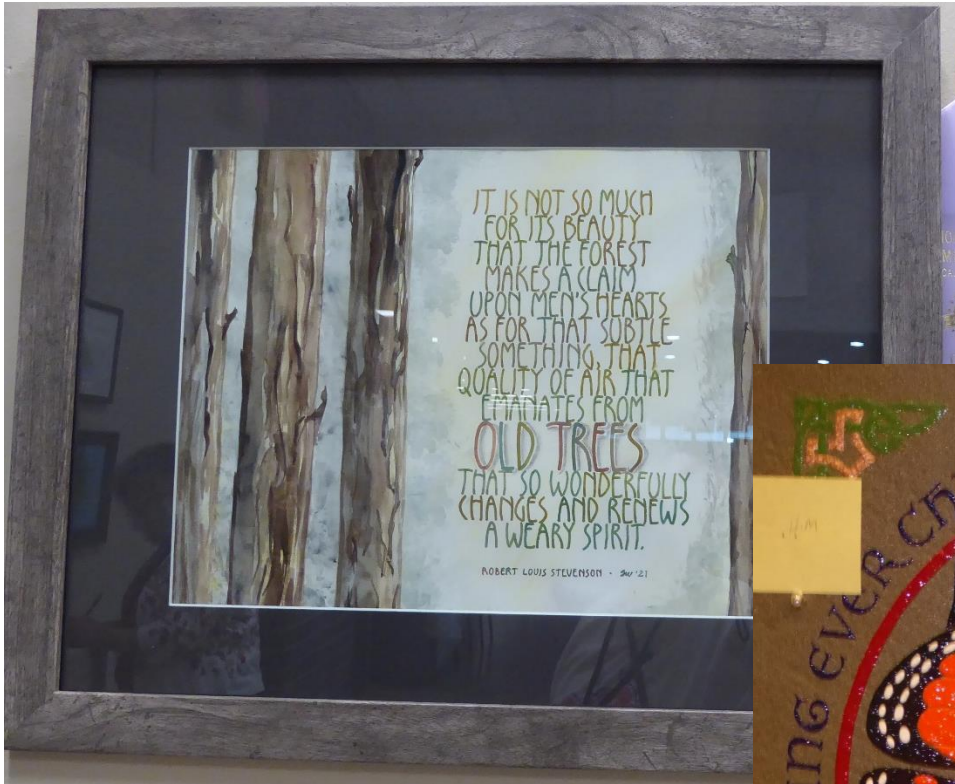 IT IS NOT SO MUCH
FOR ITS BEAUTY
THAT THE FOREST
MAKES A CLAIM
UPON MEN'S HEARTS
AS FOR THAT SUBTLE
SOMETHING, THAT
QUALITY OF AIR THAT
EMANATES FROM
OLD TREES
THAT SO WONDERFULLY
CHANGES AND RENEWS
A WEARY SPIRIT.
ROBERT LOUIS STEVENSON · '21
EVER